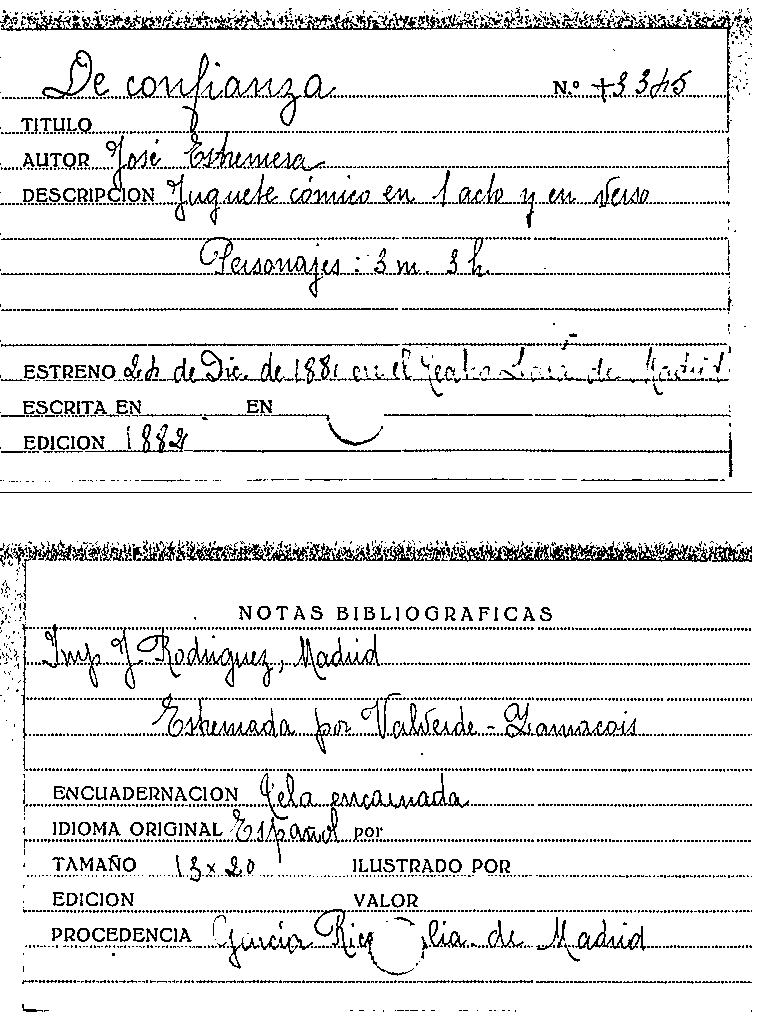 De confianza N.º +3345
TITULO
AUTOR José Estremera
DESCRIPCION Juguete cómico en 1 acto y en verso
Personajes: 3 m. 3 h.
ESTRENO 24 de Dic. de 1881 en el Teatro Lara de Madrid
ESCRITA EN EN
EDICION 1882
NOTAS BIBLIOGRAFICAS
Imp J. Rodriguez, Madrid
Estrenada por Valverde - Zamacois
ENCUADERNACION Tela encarnada
IDIOMA ORIGINAL Español por
TAMAÑO 13 x 20 ILUSTRADO POR
EDICION VALOR
PROCEDENCIA García Rico de Madrid